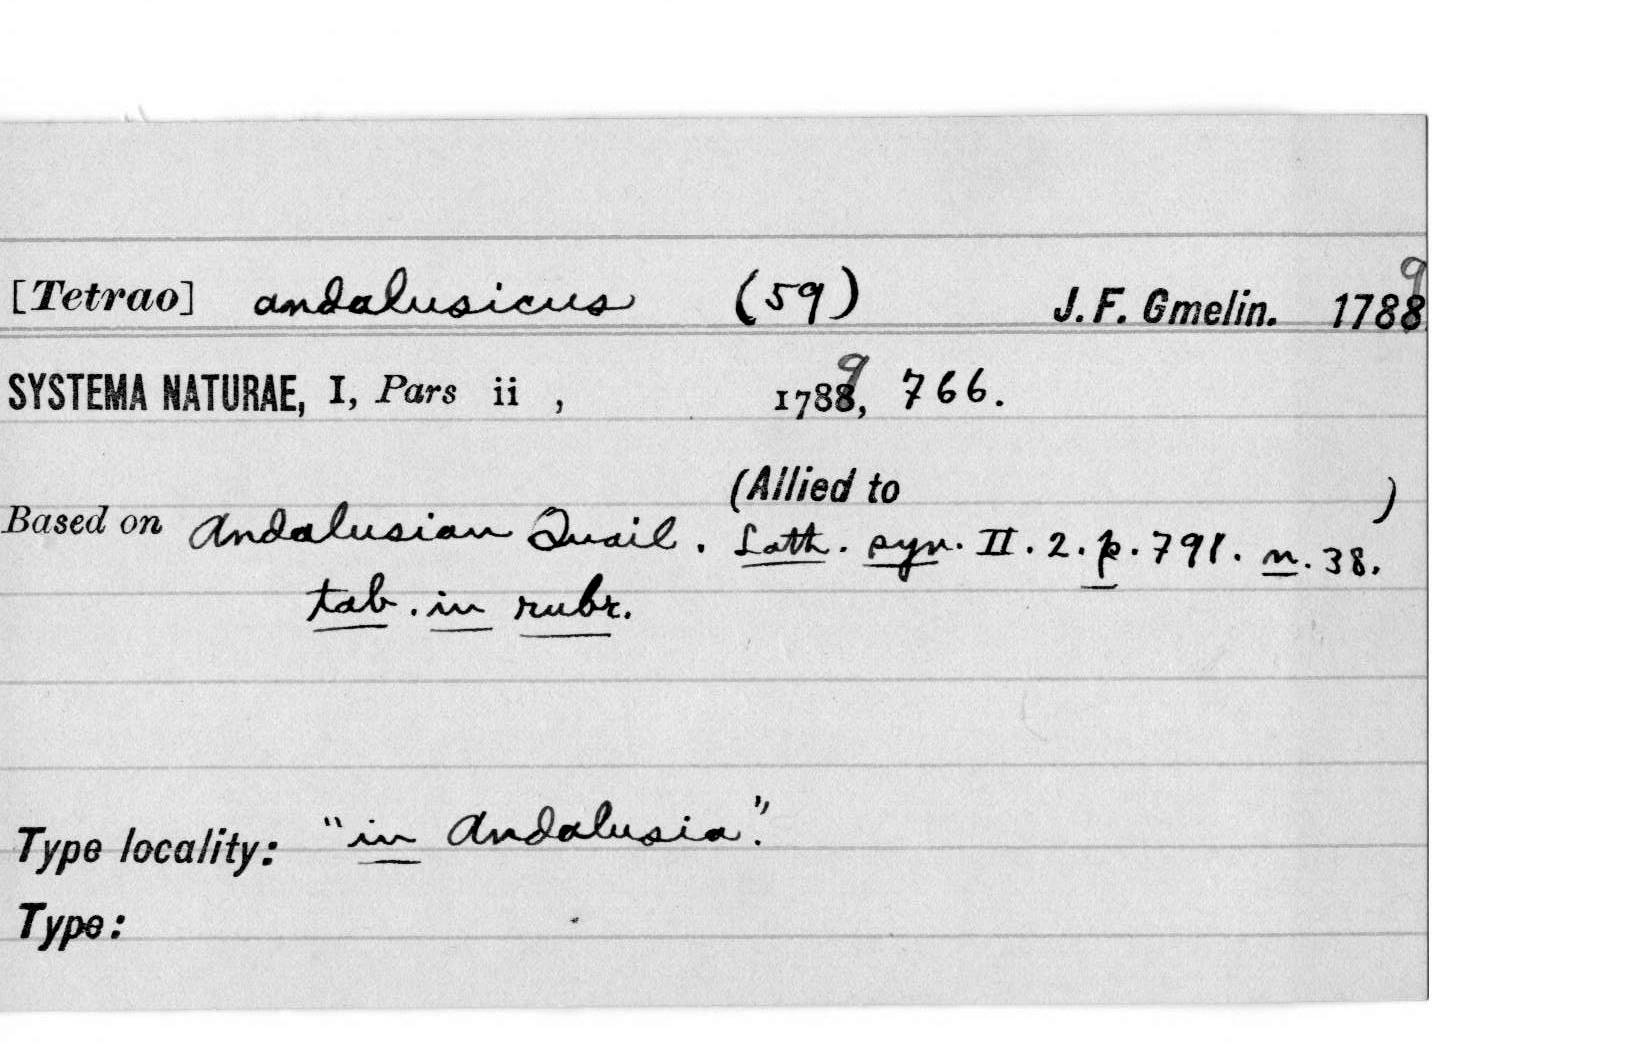 [Tetrao] andalusicus (59) J. F. Gmelin. 1789
SYSTEMA NATURAE, I, Pars ii , 1789, 766.
(Allied to )
Based on Andalusian Quail. Lath. syn. II. 2. p. 791. n. 38.
tab. in rubr.
Type locality: "in Andalusia".
Type: